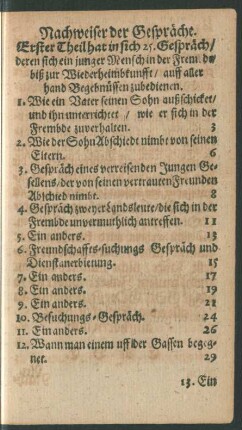 Nachweiser der Gespräche.
Erster Theil hat in sich 25. Gespräch/
deren sich ein junger Mensch in der Fremde
biß zur Wiederheimbkunfft / auff aller
hand Begebnüssen zubedienen.
1. Wie ein Vater seinen Sohn außschicket/
und ihn unterrichtet / wie er sich in der
Frembde zuverhalten. 3
2. Wie der Sohn Abschied nimbt von seinen
Eltern. 6
3. Gespräch eines verreisenden Jungen Ge-
sellens/ der von seinen vertrauten Freunden
Abschied nimbt. 8
4. Gespräch zweyer Landsleute/ die sich in der
Frembde unvermuthlich antreffen. 11
5. Ein anders. 13
6. Freundschaffts-suchungs Gespräch und
Dienstanerbietung. 15
7. Ein anders. 17
8. Ein anders. 19
9. Ein anders. 21
10. Besuchungs-Gespräch. 24
11. Ein anders. 26
12. Wann man einem uff der Gassen begeg-
net. 29
13. Ein